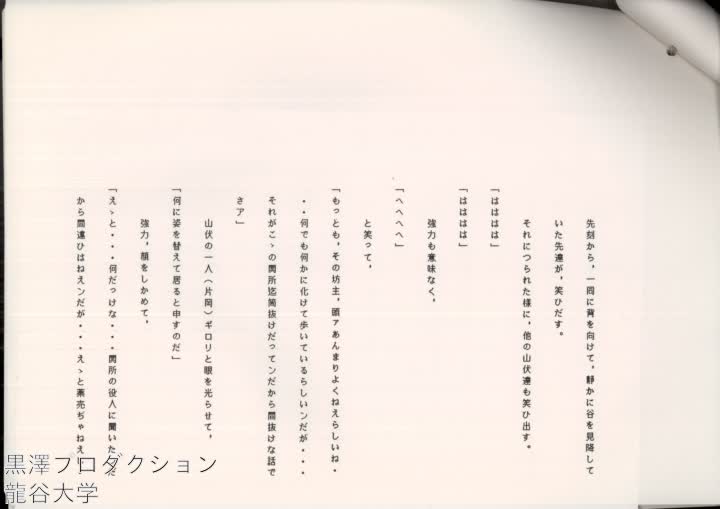 先刻から，一同に背を向けて，静かに谷を見降して
いた先達が，笑ひだす。
それにつられた様に，他の山伏達も笑ひ出す。
「はははは」
「はははは」
強力も意味なく，
「へへへへ」
と笑って，
「もっとも，その坊主，頭ァあんまりよくねえらしいね・
・・何でも何かに化けて歩いているらしいンだが・・・
それがこゝの関所迄筒抜けだってンだから間抜けな話で
さア」
山伏の一人（片岡）ギロリと眼を光らせて，
「何に姿を替えて居ると申すのだ」
強力，顔をしかめて，
「えゝと・・・何だっけな・・・関所の役人に聞いた
から間違ひはねえンだが・・・えゝと薬売ぢゃねえ
黒澤プロダクション
龍谷大学